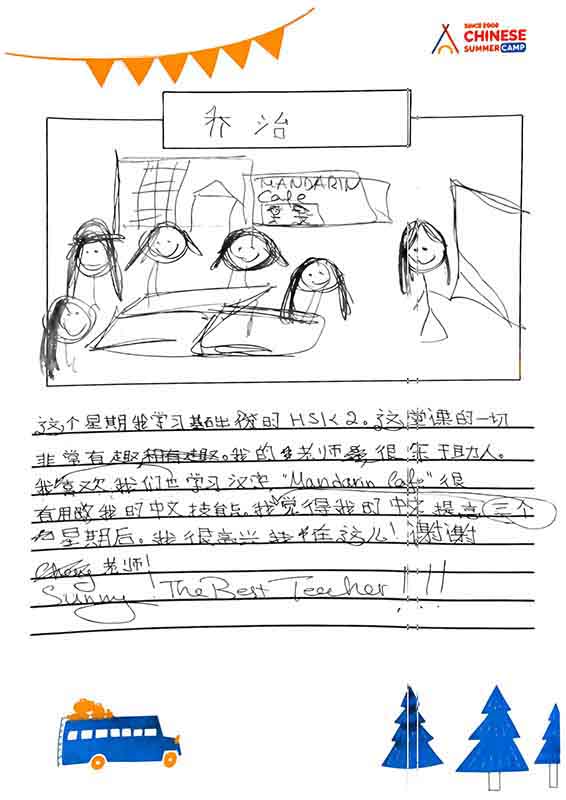 SINCE 2008
CHINESE
SUMMER CAMP
乔治
MANDARIN
Cafe
这个星期我学习基础的 HSK 2。这堂课的一切
非常有趣。我的老师很乐于助人。
我喜欢我们也学习汉字 "Mandarin Cafe" 很
有用 我的中文技能。我觉得我的中文提高三个
星期后。我很高兴我在这儿！谢谢
老师！
Sunny! The Best Teacher!!!